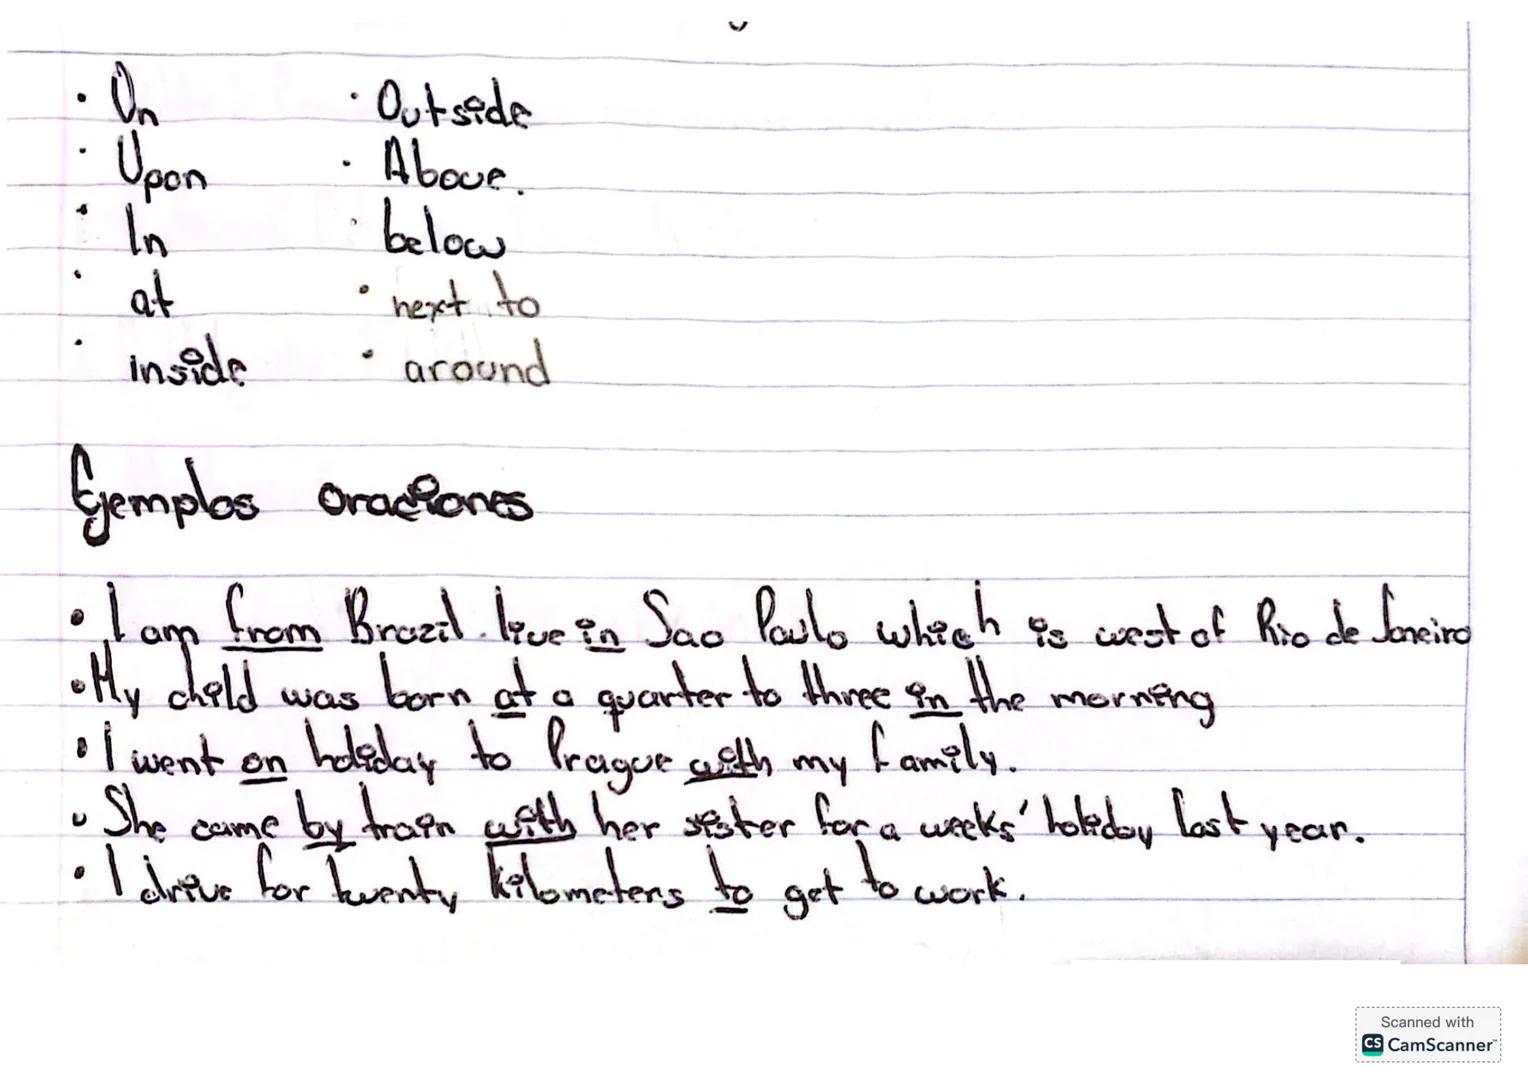 · On · Outside
· Upon · Above.
· In · below
· at · next to
· inside · around
Ejemplos oraciones
• I am from Brazil. live in Sao Paulo which is west of Rio de Janeiro
• My child was born at a quarter to three in the morning
• I went on holiday to Prague with my family.
• She came by train with her sister for a weeks' holiday last year.
• I drive for twenty kilometers to get to work.
Scanned with
CS CamScanner